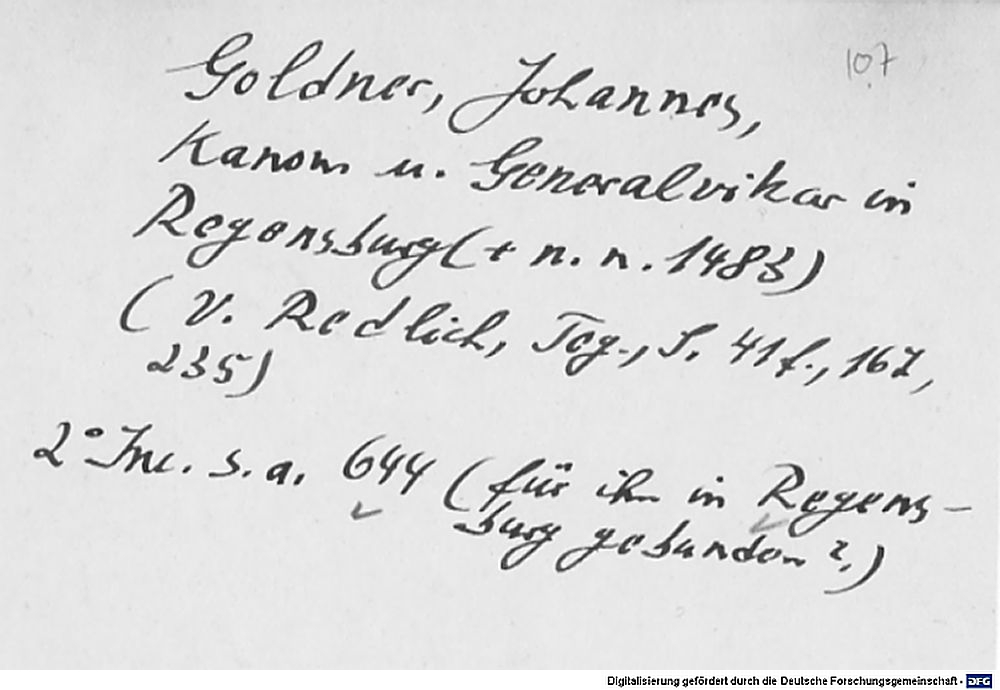 107
Goldner, Johannes,
Kanon. u. Generalvikar in
Regensburg († n. n. 1483)
(V. Redlich, Teg., S. 41 f., 167,
235)
2° Inc. s.a. 644 (für ihn in Regens-
burg gebunden?)
Digitalisierung gefördert durch die Deutsche Forschungsgemeinschaft - DFG